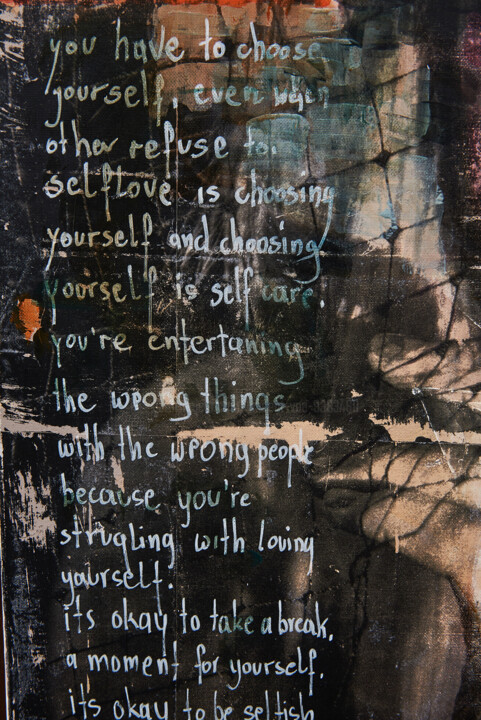 you have to choose
yourself, even when
other refuse to.
selflove is choosing
yourself and choosing
yourself is self care.
you're entertaning
the wrong things
with the wrong people
because you're
strugling with loving
yourself.
its okay to take a break,
a moment for yourself.
it's okay to be selfish